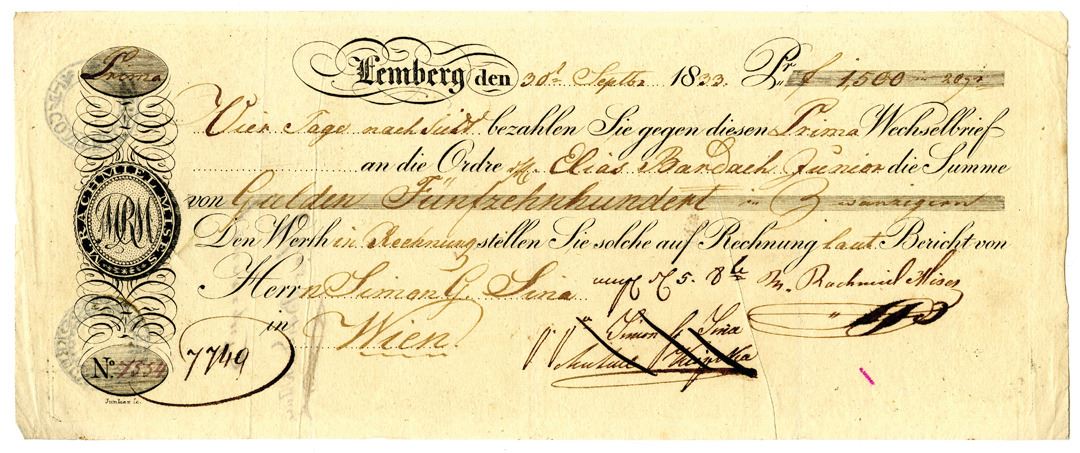 Prima
Lemberg den 30t Septber 1833. Pr. f 1,500 in 20gr
Vier Tage nach Sicht bezahlen Sie gegen diesen Prima Wechselbrief
an die Ordre H. Elias Bardach Junior die Summe
von Gulden Fünfzehnhundert in Zwanzigern
Den Werth in Rechnung stellen Sie solche auf Rechnung laut Bericht von
Herrn Simon G. Sina
M. Rachmiel Mises
in Wien
Simon G. Sina
M. RACHMIEL MISES
MRM
No. 1554
7749
Junker sc.